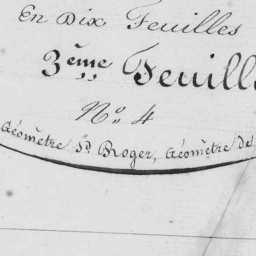 En Dix Feuilles
3ème Feuill
No 4
Géomètre Sr. Broger, Géomètre de